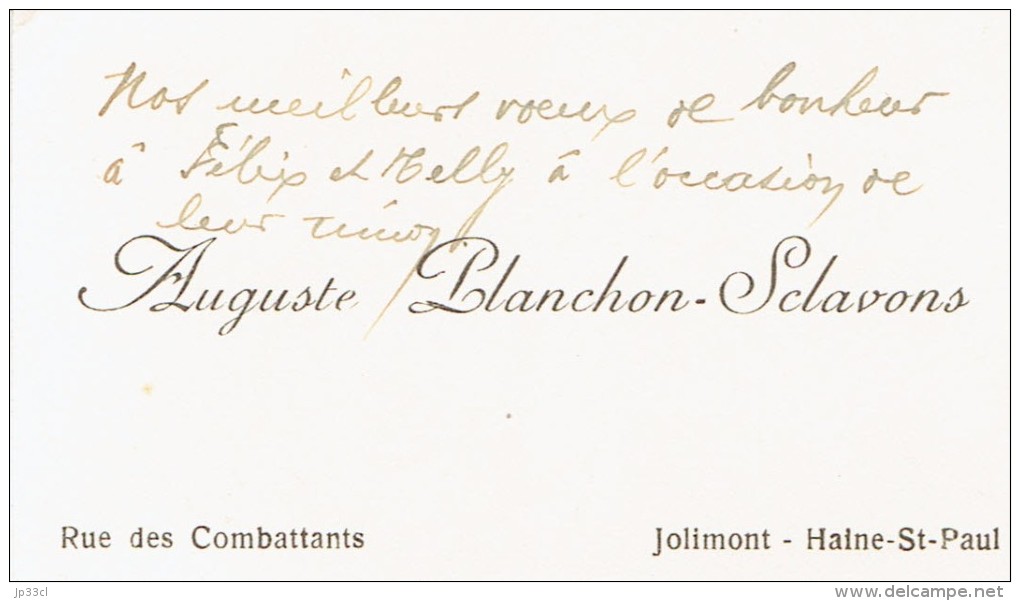 Nos meilleurs voeux de bonheur
à Félix et Nelly à l'occasion de
leur union
Auguste Planchon-Sclavons
Rue des Combattants
Jolimont - Haine-St-Paul
jp33cl
delcampe.net